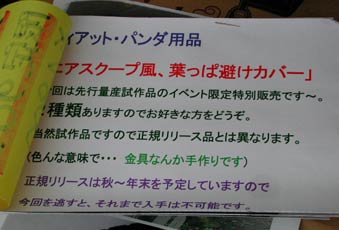 ィアット・パンダ用品
エアスクープ風、葉っぱ避けカバー」
回は先行量産試作品のイベント限定特別販売です～。
2種類ありますのでお好きな方をどうぞ。
当然試作品ですので正規リリース品とは異なります。
(色んな意味で・・・ 金具なんか手作りです)
正規リリースは秋～年末を予定していますので
今回を逃すと、それまで入手は不可能です。